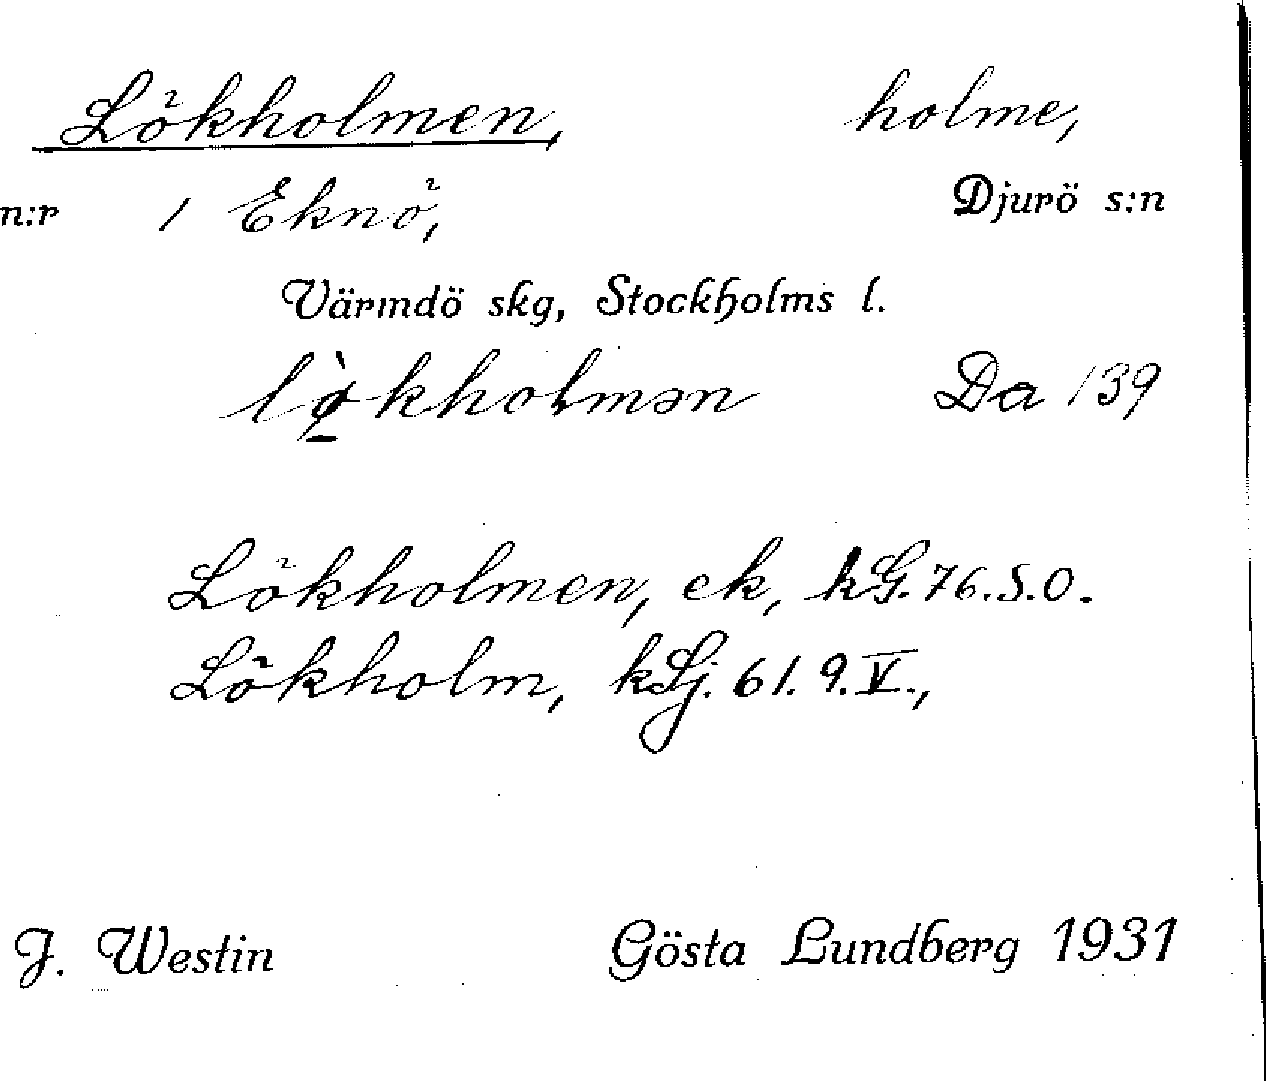 Lökholmen, holme,
n:r 1 Eknö, Djurö s:n
Värmdö skg, Stockholms l.
lø̀kholmən Da 139
Lökholmen, ek, kG. 76.S.O.
Lökholm, kLj. 61. 9. V.,
J. Westin Gösta Lundberg 1931